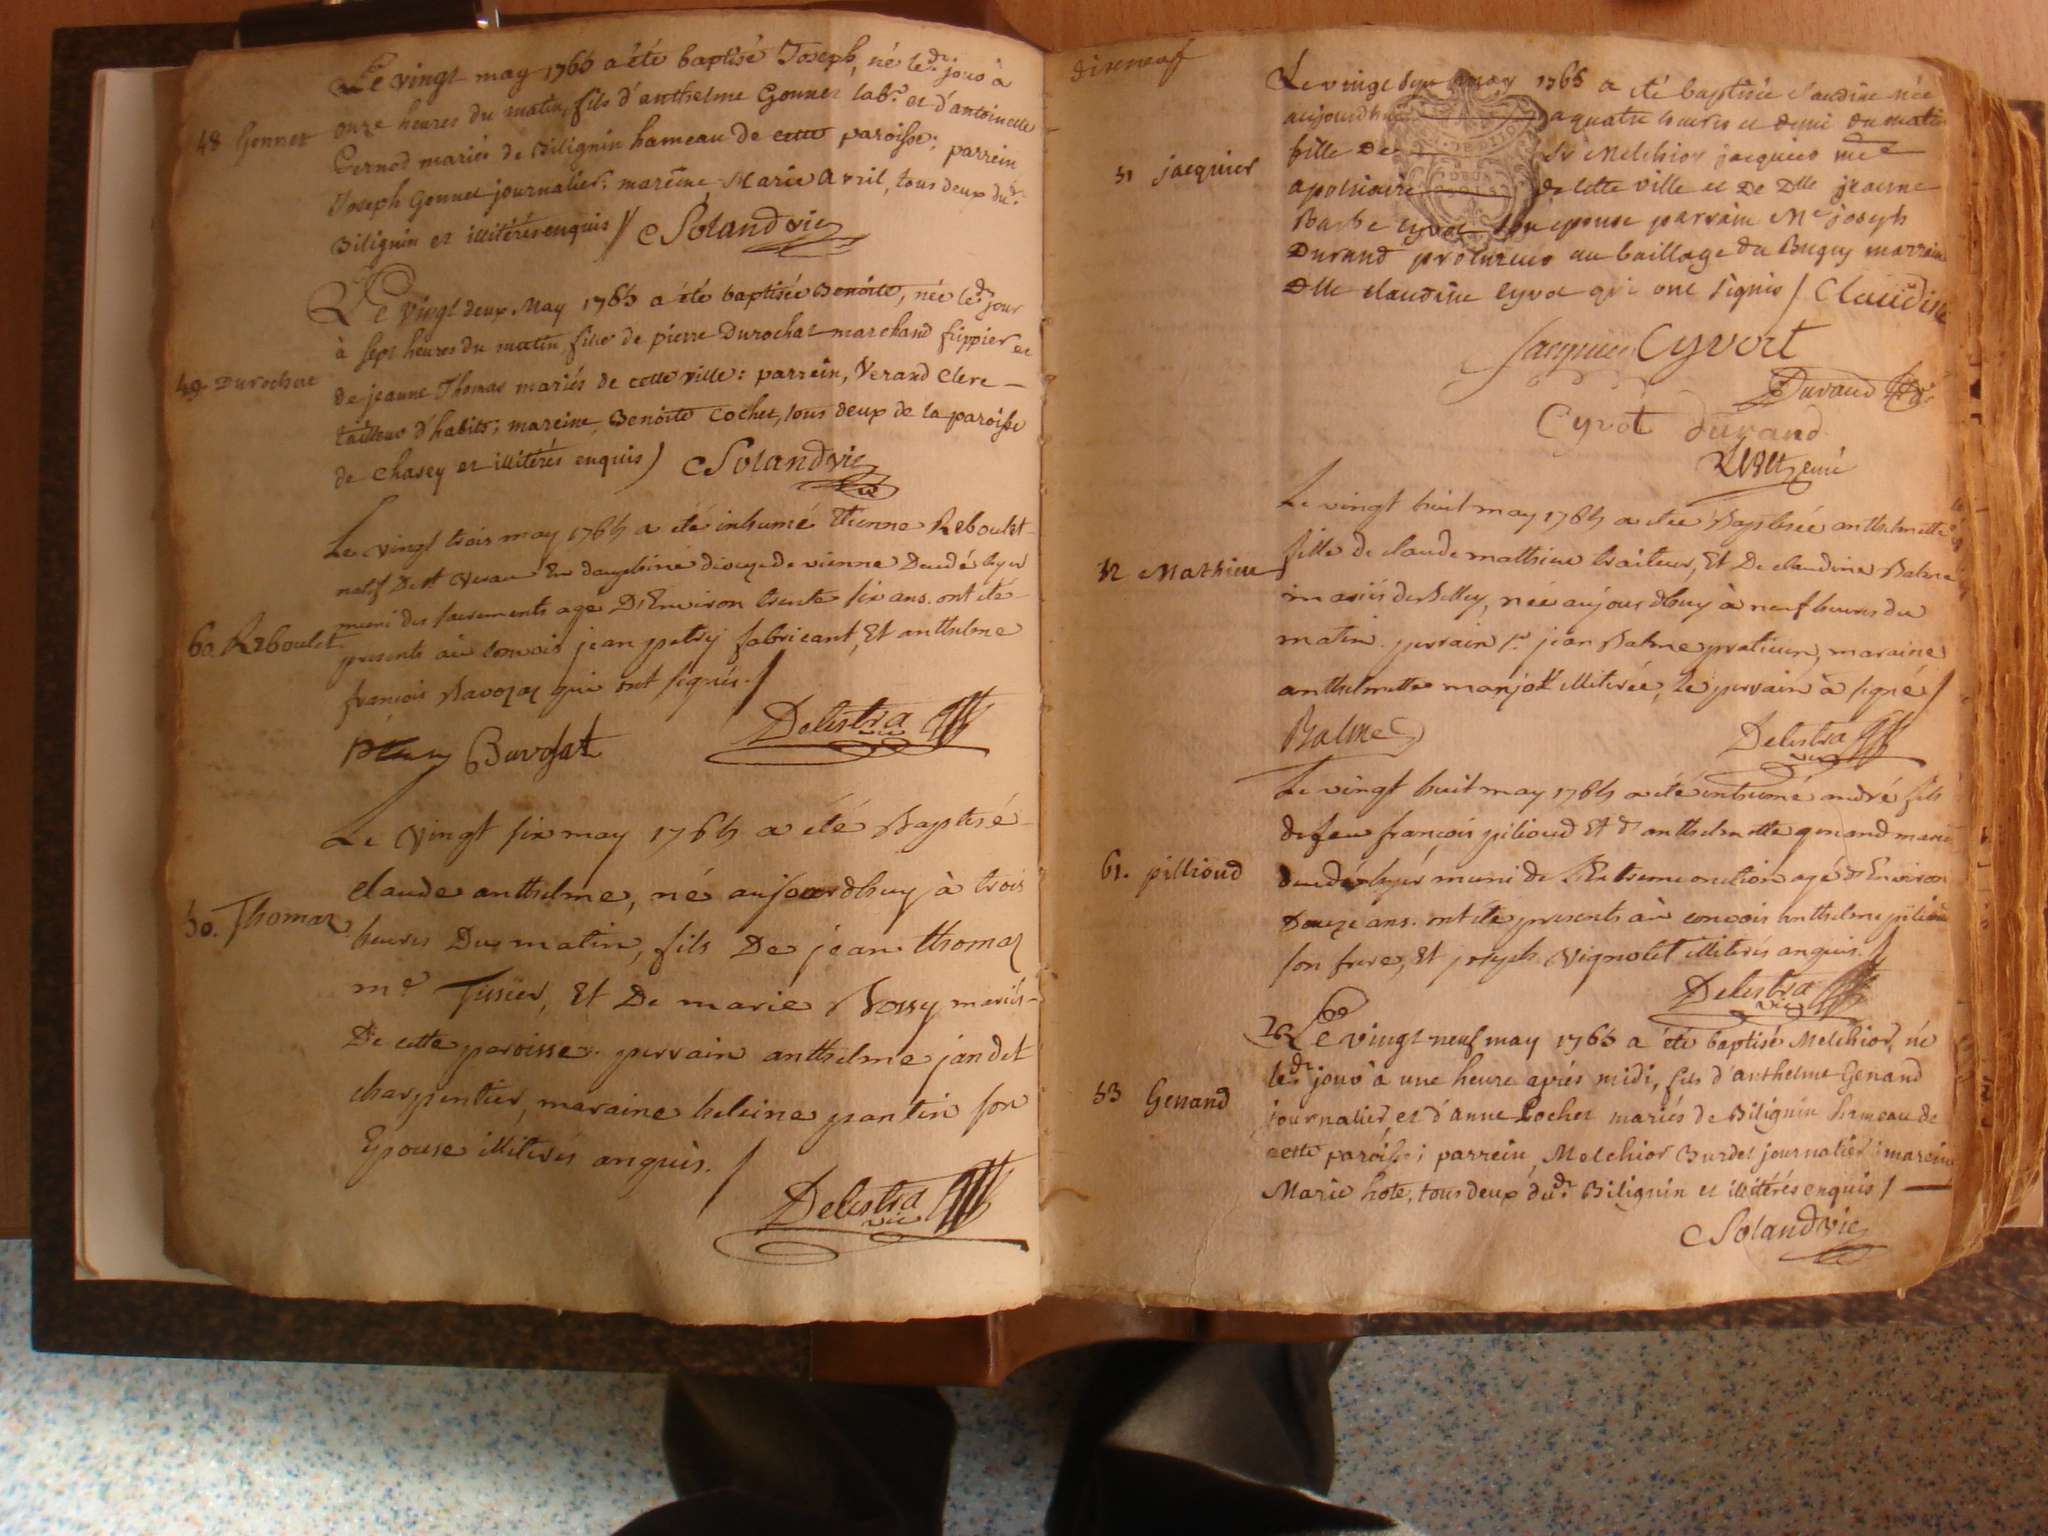 Le vingt may 1765 a été baptisé Joseph, né led.r jour à
48 Gonnet onze heures du matin, fils d'anthelme Gonnet lab.r et d'antoinette
Pernod mariés de Bilignin hameau de cette paroisse; parrein
Joseph Gonnet journalier; mareine Marie Avril, tous deux dud.r
Bilignin et illitérés enquis // Soland vic
Le vingt deux May 1765 a été baptisée Benoite, née led.r jour
à sept heures du matin, fille de pierre Durochat marchand frippier et
49 Durochat de jeanne Thomas mariés de cette ville: parrein, Verand Clerc
tailleur d'habits; mareine, Benoite Cochet, tous deux de la paroisse
de Chasey et illitérés enquis / Soland vic
Le vingt trois may 1765 a été inhumé Etienne Reboulet
natif De st Veran En dauphiné diocese de vienne Decedé hyer
muni des sacrements age D'Environ trente six ans. ont été
60. Reboulet presents au convois jean petry fabricant, Et anthelme
françois Bavozat qui ont signés. /
Bavosat Delestra vic
Le vingt six may 1765 a été Baptisé
claude anthelme, né aujourdhuy à trois
50. Thomas heures Du matin, fils De jean thomas
m.e Tissier, Et De marie Bossy mariés
De cette paroisse. parrain anthelme jandet
charpentier, maraine heleine pantin son
Epouse illiterés anquis. /
Delestra vic
dixneuf
Le vingt sept may 1765 a été baptisée Claudine née
aujourdhui a quatre heures et demi du matin
fille De Sr Melchior jacquier me
51 jacquier apoticaire de cette ville et De Dlle jeanne
Barbe Cyvot son epouse parrain Me joseph
Durand procureur au baillage du Bugey marraine
Dlle claudine Cyvot qui ont signés / Claudine
jacquier Cyvert
Durand
Cyvot durand
Le vingt huit may 1765 a été Baptisée anthelmette
fille de claude mathieu traiteur, Et De claudine Balme
52 Mathieu mariés de Belley, née aujourdhuy à neuf heures du
matin. parrain Sr jean Balme praticien, maraine
anthelmette marjolt illiterée, le parrain à signé /
Balme Delestra vic
Le vingt huit may 1765 a été inhumé andré fils
de feu françois pilioud Et d'anthelmette genand mariés
61. pillioud decedé hyer muni de l'Extremeonction agé d'Environ
Douze ans. ont été presents au convois anthelme pilioud
son frere, Et joseph Vignolet illiterés anquis. /
Delestra vic
Le vingt neuf may 1765 a été baptisé Melchior, né
led.r jour à une heure après midi, fils d'anthelme Genand
53 Genand journalier, et d'anne Cochet mariés de Bilignin hameau de
cette paroisse; parrein, Melchior Burdet journalier: mareine
Marie hote, tous deux dud.r Bilignin et illitérés enquis /
Soland vic